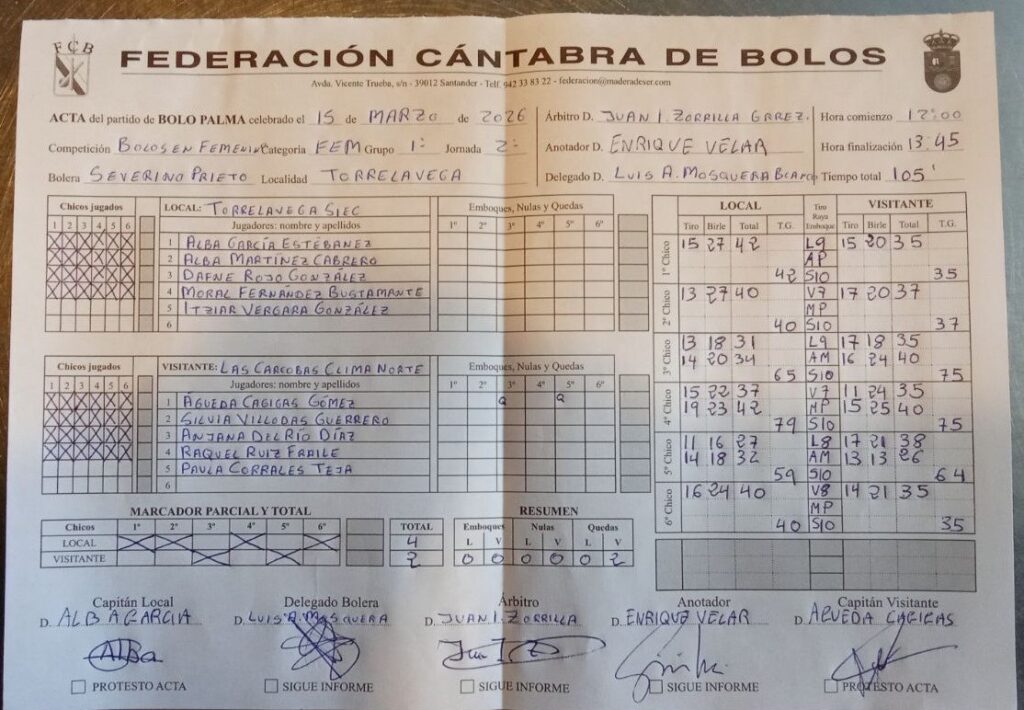 FCB
FEDERACIÓN CÁNTABRA DE BOLOS
Avda. Vicente Trueba, s/n - 39012 Santander - Telf. 942 33 83 22 - federacion@maderadeser.com
ACTA del partido de BOLO PALMA celebrado el 15 de MARZO de 2026
Competición BOLOS EN FEMENINO Categoría FEM Grupo 1ª Jornada 2ª
Bolera SEVERINO PRIETO Localidad TORRELAVEGA
Árbitro D. JUAN I. ZORRILLA GRREZ.
Anotador D. ENRIQUE VELAR
Delegado D. LUIS A. MOSQUERA BLANCO
Hora comienzo 12:00
Hora finalización 13:45
Tiempo total 105'
Chicos jugados LOCAL: TORRELAVEGA SIEC Emboques, Nulas y Quedas
1 2 3 4 5 6 Jugadores: nombre y apellidos 1º 2º 3º 4º 5º 6º
1 ALBA GARCÍA ESTÉBANEZ
2 ALBA MARTÍNEZ CABRERO
3 DAFNE ROJO GONZÁLEZ
4 MORAL FERNÁNDEZ BUSTAMANTE
5 ITZIAR VERGARA GONZÁLEZ
6
Chicos jugados VISITANTE: LAS CARCOBAS CLIMA NORTE Emboques, Nulas y Quedas
1 2 3 4 5 6 Jugadores: nombre y apellidos 1º 2º 3º 4º 5º 6º
1 AGUEDA CAGIGAS GÓMEZ Q Q
2 SILVIA VILLODAS GUERRERO
3 ANJANA DEL RÍO DÍAZ
4 RAQUEL RUIZ FRAILE
5 PAULA CORRALES TEJA
6
LOCAL Tiro Raya Emboque VISITANTE
Tiro Birle Total T.G. Tiro Birle Total T.G.
1º Chico 15 27 42 L9 15 20 35
AP
42 S10 35
2º Chico 13 27 40 V7 17 20 37
MP
40 S10 37
3º Chico 13 18 31 L9 17 18 35
14 20 34 AM 16 24 40
65 S10 75
4º Chico 15 22 37 V7 11 24 35
19 23 42 MP 15 25 40
79 S10 75
5º Chico 11 16 27 L8 17 21 38
14 18 32 AM 13 13 26
59 S10 64
6º Chico 16 24 40 V8 14 21 35
MP
40 S10 35
MARCADOR PARCIAL Y TOTAL
Chicos 1º 2º 3º 4º 5º 6º TOTAL
LOCAL 4
VISITANTE 2
RESUMEN
Emboques Nulas Quedas
L V L V L V
0 0 0 0 0 2
Capitán Local
D. ALBA GARCIA
Alba
PROTESTO ACTA
Delegado Bolera
D. LUIS A. MOSQUERA
SIGUE INFORME
Árbitro
D. JUAN I. ZORRILLA
SIGUE INFORME
Anotador
D. ENRIQUE VELAR
SIGUE INFORME
Capitán Visitante
D. AGUEDA CAGIGAS
PROTESTO ACTA